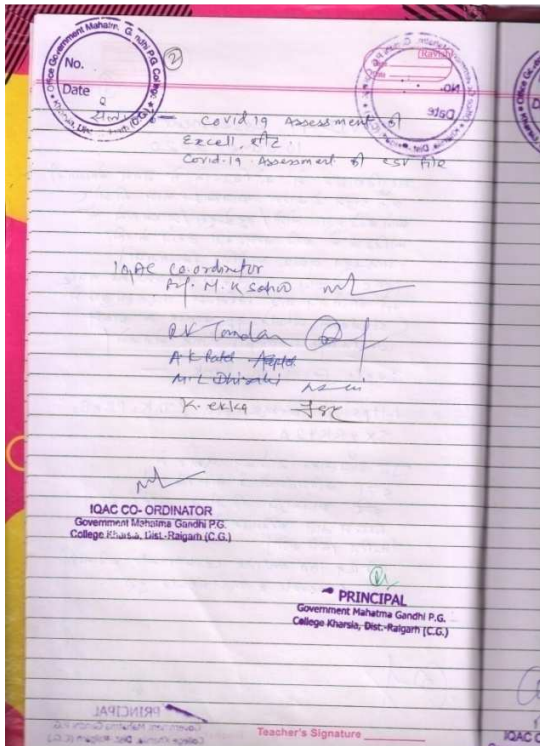 Office Government Mahatma Gandhi P.G. College
②
No.
Date
Covid 19 Assessment of
Excell,
Covid-19 Assessment of csv file
IQAC Co.ordinator
Prof. M. K Sahu
RK Tondan
A K Patel
M. L Dhirahi
K. ekka
IQAC CO- ORDINATOR
Government Mahatma Gandhi P.G.
College Kharsia, Dist.-Raigarh (C.G.)
PRINCIPAL
Government Mahatma Gandhi P.G.
College Kharsia, Dist.-Raigarh (C.G.)
Teacher's Signature
IQAC C